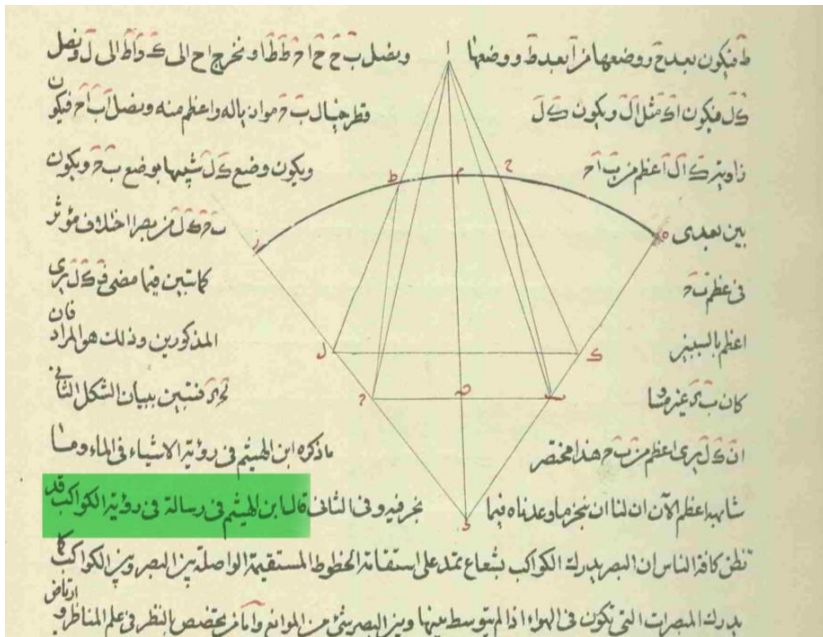 ط فيكون بعد ح ووضعها من ا بعد ط ووضعها ونصل ب ح ح ا ح ط ط ا ونخرج ا ح الى ك و ا ط الى ل ونصل
ك ل فيكون ا ك مثل ا ل ويكون ك ل قطر خيال ب ح مواز ياله واعظم منه ونصل ا ب ا ح فيكون
زاوية ك ا ل اعظم من ب ا ح ويكون وضع ك ل شبيها بوضع ب ح ويكون
بين بعدى ب ح ك ل من بصر ا اختلاف مؤثر
فى عظم ب ح كما تبين فيما مضى ف ك ل يرى
اعظم بالسببين المذكورين وذلك هو المراد فان
كان ب ح غير تبين ببيان الشكل الثانى
ان ك ل يرى اعظم من ب ح هذا مختصر ما ذكره ابن الهيثم فى رؤية الاشياء فى الماء وما
شابهه اعظم الآن ان لنا ان ننجز ما وعدناه فيما نحن فيه وفى الثانى قال ابن الهيثم فى رسالة فى رؤية الكواكب قد
تظن كافة الناس ان البصر يدرك الكواكب بشعاع يمتد على استقامة الخطوط المستقيمة الواصلة بين البصر وبين الكواكب كما
يدرك المبصرات التى تكون فى الهواء اذا لم يتوسط بينها وبين البصر شئ من الموانع وأما من يختص بالنظر فى علم المناظر و ارتاض
ا
ط
م
ح
ر
ه
ل
ك
ح
ں
ب
د